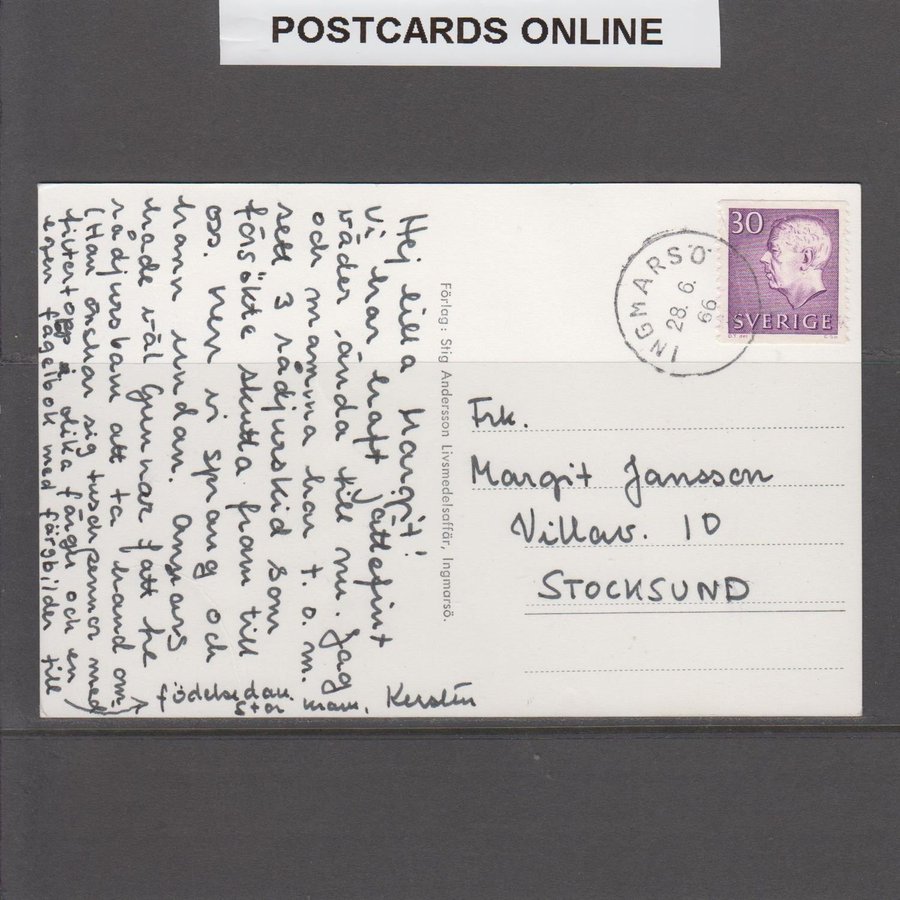 POSTCARDS ONLINE
Hej lilla Margit!
Vi har haft jättefint
väder ända till nu. Jag
och mamma har t.o.m.
sett 3 rådjurskid som
försökte skutta fram till
oss. Men vi sprang och
hann undan. Annars
hade väl Gunnar fått tre
rådjursbarn att ta hand om.
(Han önskar sig tuschpennor med
filtertopp i olika färger och en
egen fågelbok med färgbilder till
födelsedan.
Stor kram, Kerstin
Förlag: Stig Andersson Livsmedelsaffär, Ingmarsö.
INGMARSÖ
28. 6.
66
30
SVERIGE
Frk.
Margit Jansson
Villav. 10
STOCKSUND